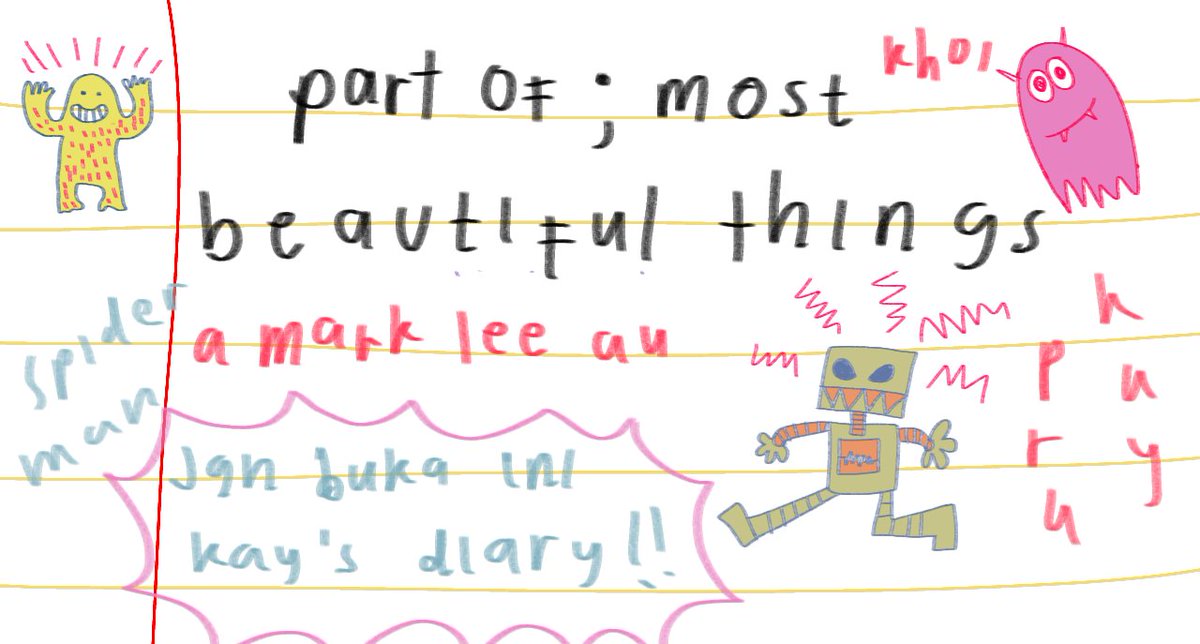 part of ; most
beautiful things
khoi
a mark lee au
spider
man
jgn buka ini
kay's diary !!
puru
huy